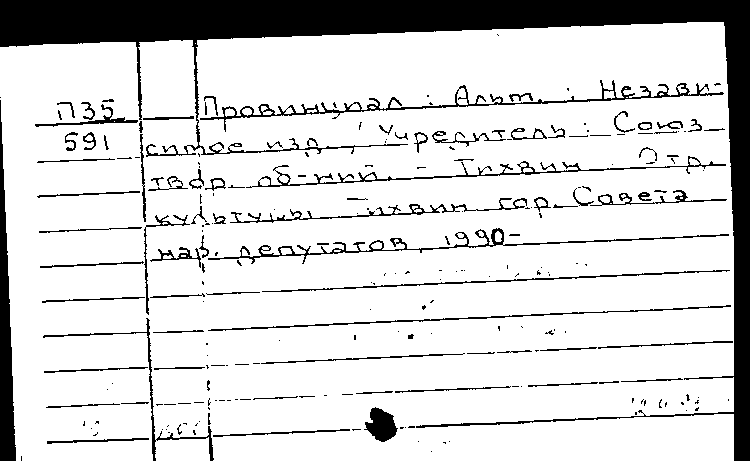 П35 Провинциал : Альм. : Незави-
591 симое изд. / Учредитель : Союз
твор. об-ний. - Тихвин : Отд.
культуры Тихвин. гор. Совета
нар. депутатов, 1990-